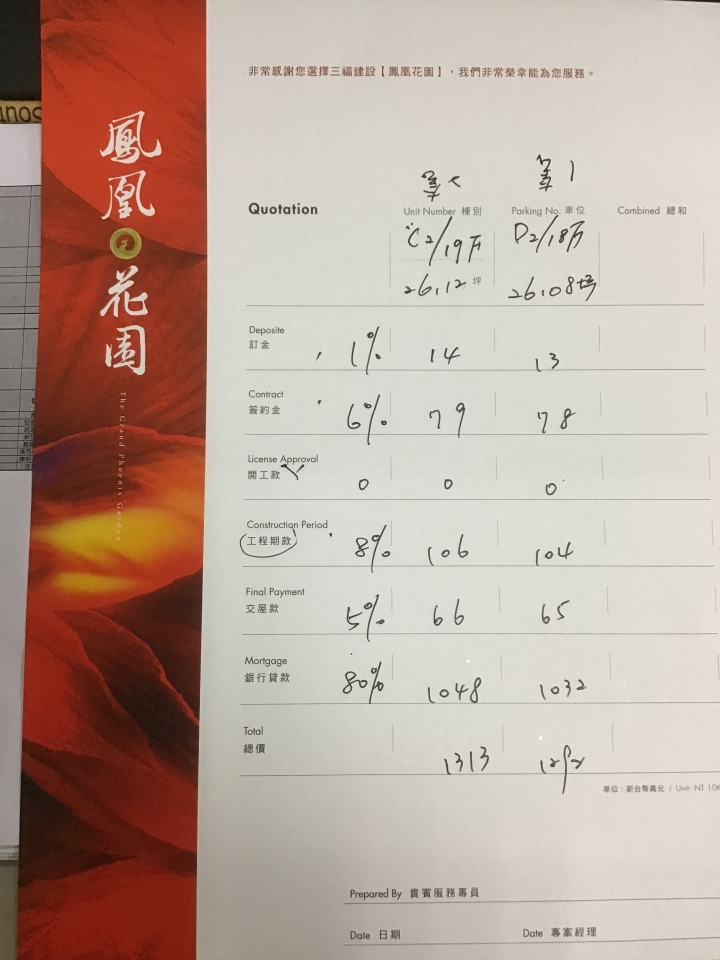 非常感謝您選擇三福建設【鳳凰花園】，我們非常榮幸能為您服務。
鳳凰花園
The Grand Phoenix Garden
Quotation
Unit Number 棟別 Parking No. 車位 Combined 總和
C2/19F D2/18F
26.12 坪 26.08坪
Deposite
訂金 1% 14 13
Contract
簽約金 6% 79 78
License Approval
開工款 0 0 0
Construction Period
工程期款 8% 106 104
Final Payment
交屋款 5% 66 65
Mortgage
銀行貸款 80% 1048 1032
Total
總價 1313 1292
單位：新台幣萬元 / Unit NT 10K
Prepared By 貴賓服務專員
Date 日期 Date 專案經理